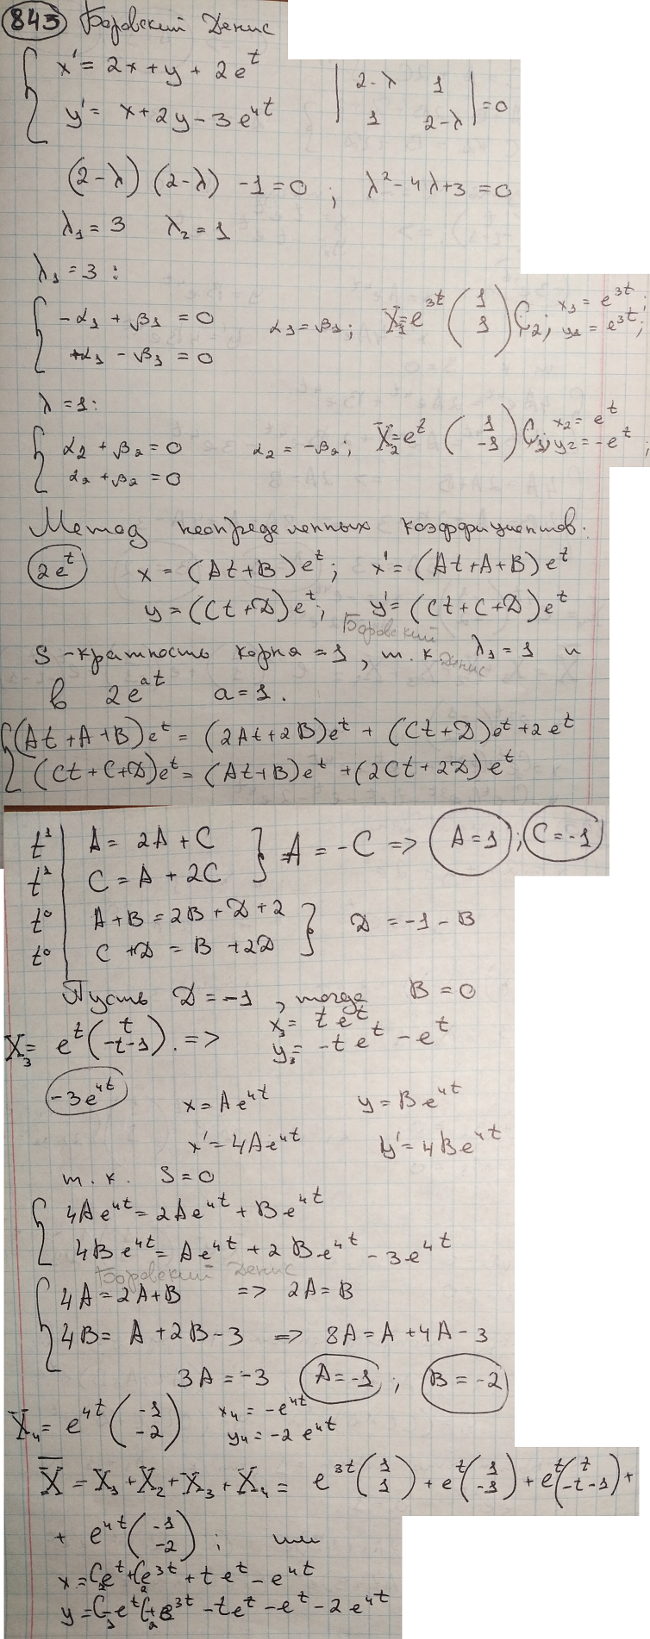 843 Боровский Денис
{ x' = 2x + y + 2e^t
y' = x + 2y - 3e^{4t}
| 2-λ 1 |
| 1 2-λ | = 0
(2-λ)(2-λ) - 1 = 0 ; λ² - 4λ + 3 = 0
λ₁ = 3 λ₂ = 1
λ₁ = 3 :
{ -α₁ + β₁ = 0
+α₁ - β₁ = 0
α₁ = β₁; X₁ = e^{3t} (1 1) C₂; x₁ = e^{3t}; y₁ = e^{3t};
λ = 1:
{ α₂ + β₂ = 0
α₂ + β₂ = 0
α₂ = -β₂; X₂ = e^t (1 -1) C₁; x₂ = e^t y₂ = -e^t;
Метод неопределенных коэффициентов:
2e^t x = (At+B)e^t; x' = (At+A+B)e^t
y = (Ct+D)e^t; y' = (Ct+C+D)e^t
Боровский Денис
S - кратность корня = 1, т.к. λ₁ = 1 и
в 2e^{at} a = 1.
{ (At+A+B)e^t = (2At+2B)e^t + (Ct+D)e^t + 2e^t
(Ct+C+D)e^t = (At+B)e^t + (2Ct+2D)e^t
t¹ | A = 2A + C
t¹ | C = A + 2C } A = -C => A = 1; C = -1
t⁰ | A+B = 2B + D + 2
t⁰ | C + D = B + 2D } D = -1 - B
Пусть D = -1, тогда B = 0
X₃ = e^t (t -t-1). => x₃ = te^t y₃ = -te^t - e^t
-3e^{4t} x = Ae^{4t} y = Be^{4t}
x' = 4Ae^{4t} y' = 4Be^{4t}
т.к. S = 0
{ 4Ae^{4t} = 2Ae^{4t} + Be^{4t}
4Be^{4t} = Ae^{4t} + 2Be^{4t} - 3e^{4t}
Боровский Денис
{ 4A = 2A + B => 2A = B
4B = A + 2B - 3 => 8A = A + 4A - 3
3A = -3 A = -1; B = -2
X₄ = e^{4t} (-1 -2) x₄ = -e^{4t} y₄ = -2e^{4t}
X̄ = X₁ + X₂ + X₃ + X₄ = e^{3t} (1 1) + e^t (1 -1) + e^t (t -t-1) +
+ e^{4t} (-1 -2); или
x = C₁e^t + C₂e^{3t} + te^t - e^{4t}
y = -C₁e^t + C₂e^{3t} - te^t - e^t - 2e^{4t}